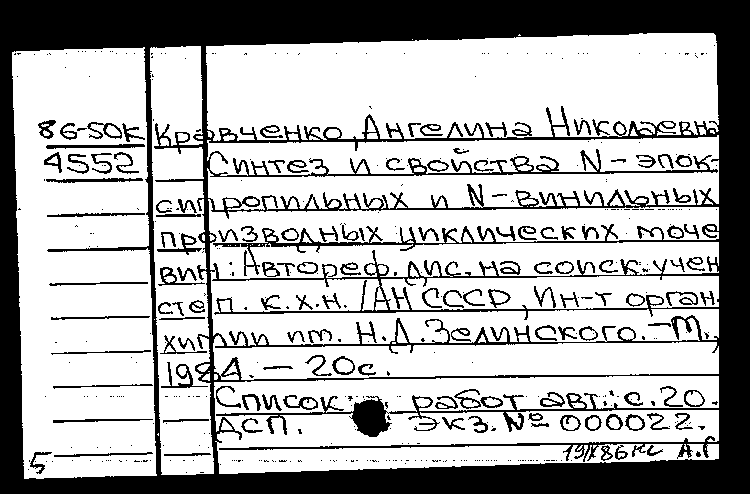 86-50к Кравченко, Ангелина Николаевна
4552 Синтез и свойства N-эпок-
сипропильных и N-винильных
производных циклических моче
вин: Автореф. дис. на соиск. учен
степ. к.х.н. /АН СССР, Ин-т орган.
химии им. Н.Д. Зелинского. -М.,
1984. - 20с.
Список работ авт.: с. 20.
ДСП. экз. № 000022.
5 А.Г